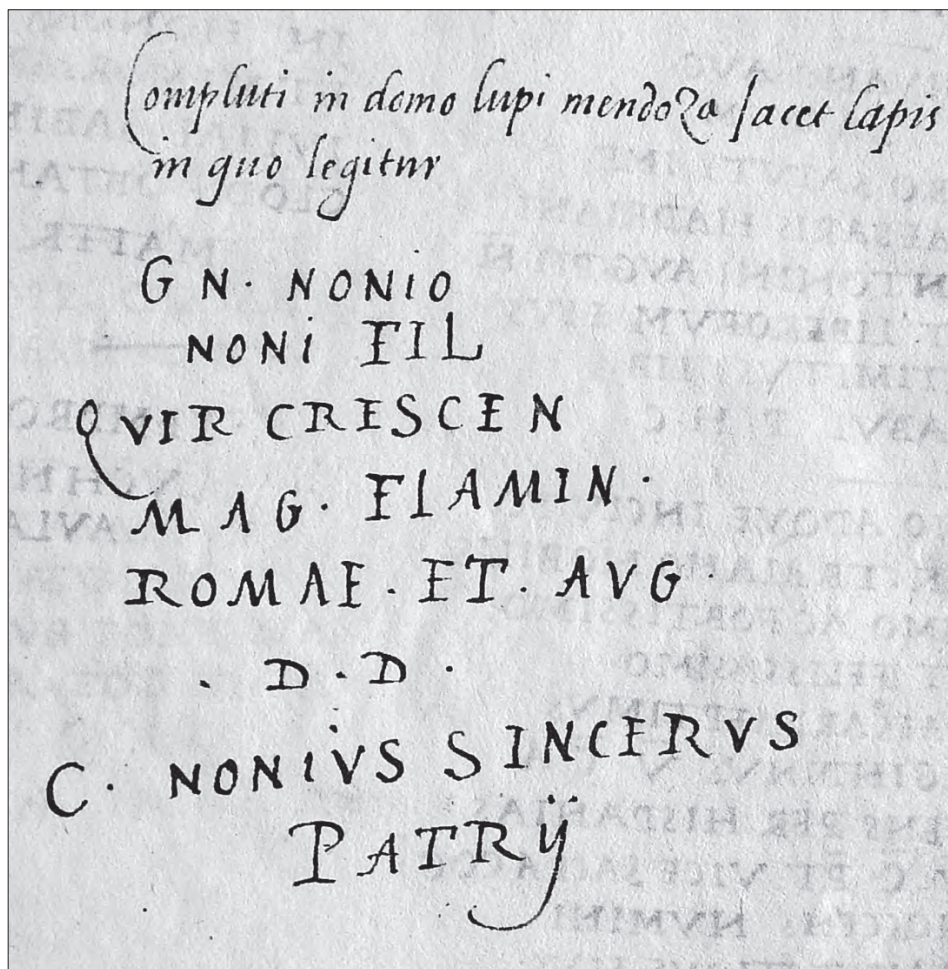 Compluti in domo lupi mendoza Jacet lapis
in quo legitur
GN. NONIO
NONI FIL
QVIR CRESCEN
MAG. FLAMIN.
ROMAE. ET. AVG.
. D. D.
C. NONIVS SINCERVS
PATRIJ